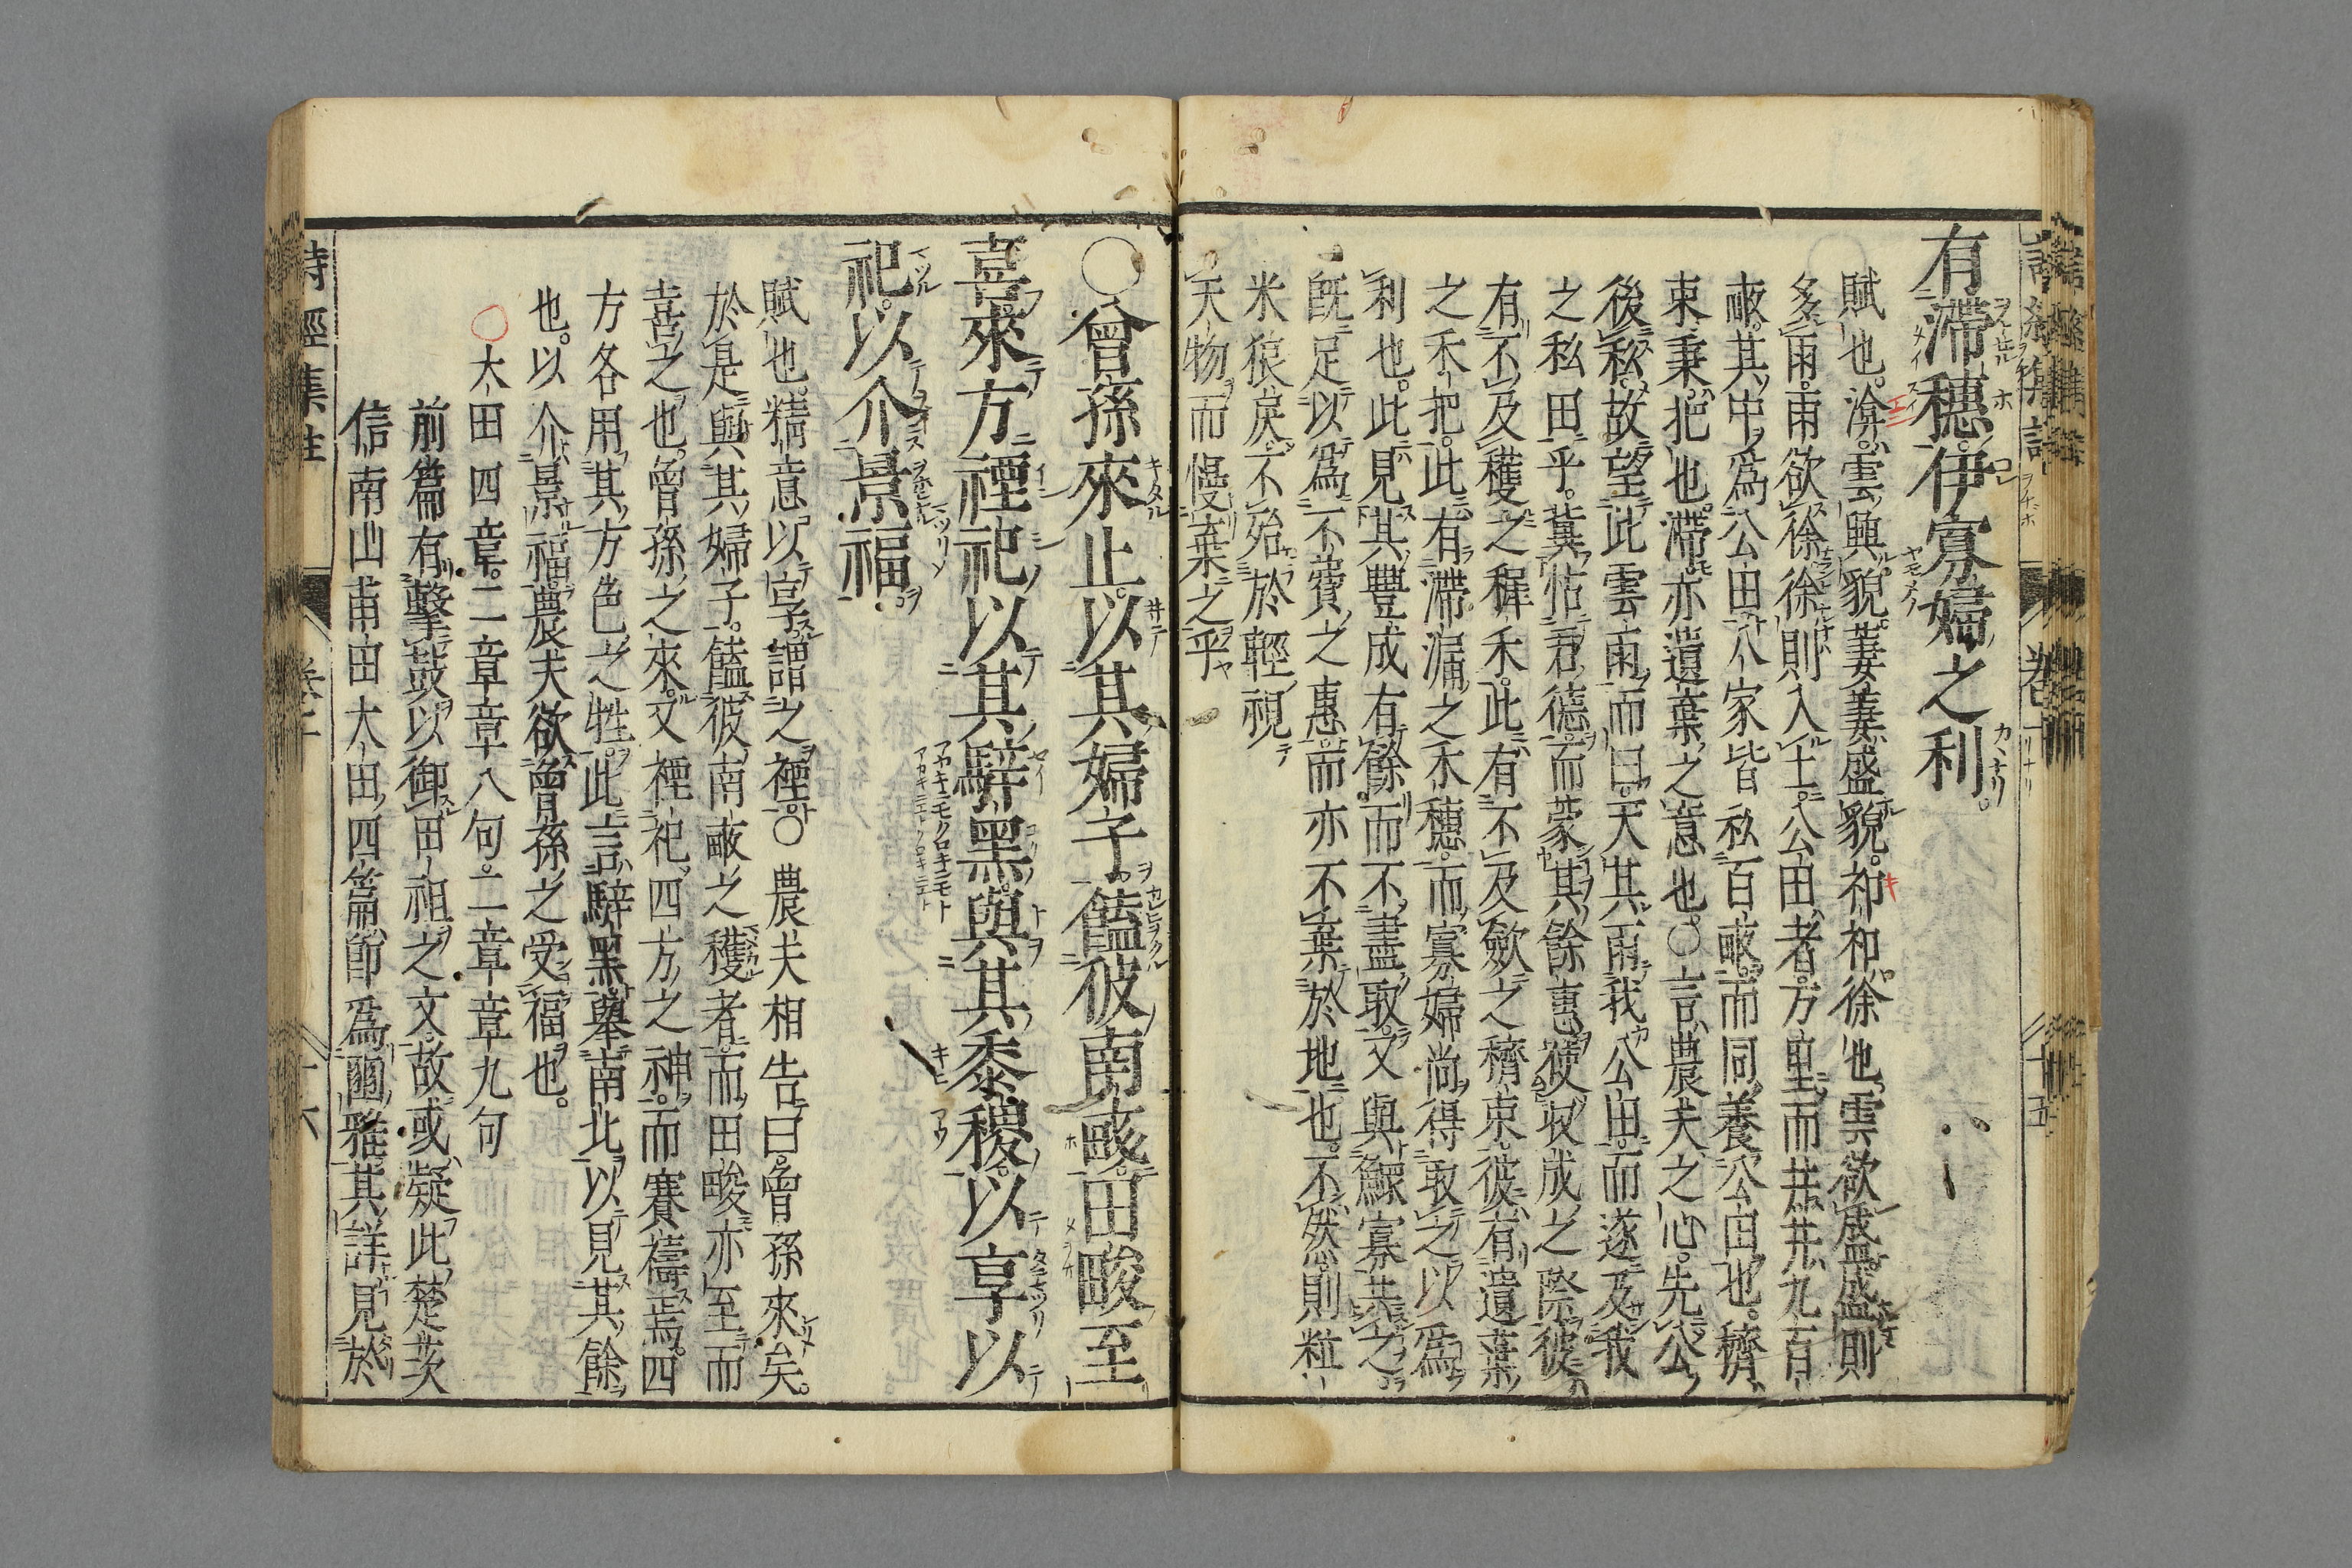 有滯穗。伊寡婦之利。
賦也。渰。雲興貌。萋萋盛貌。祁祁徐也。雲欲盛盛則
多雨。雨欲徐徐則入土。公田者。方里而井井九百
畝。其中爲公田。八家皆私百畝。而同養公田也。穧。
束秉。把也。滯亦遺棄之意也。○言農夫之心。先公
後私。故望此雲雨而曰。天其雨我公田。而遂及我
之私田乎。冀怙君德而蒙其餘惠。使收成之際。彼
有不及穫之穉禾。此有不及斂之穧束。彼有遺棄
之禾把。此有滯漏之禾穗。而寡婦尚得取之以爲
利也。此見其豐成有餘而不盡取。又與鰥寡共之。
旣足以爲不費之惠。而亦不棄於地也。不然則粒
米狼戾。不殆於輕視
天物而慢棄之乎
○曾孫來止。以其婦子。饁彼南畝。田畯至
喜。來方禋祀。以其騂黑。與其黍稷。以享以
祀。以介景福。
賦也。精意以享謂之禋。○農夫相告曰。曾孫來矣。
於是與其婦子。饁彼南畝之穫者。而田畯亦至而
喜之也。曾孫之來。又禋祀四方之神。而賽禱焉。四
方各用其方色之牲。此言騂黑擧南北以見其餘
也。以介景福。農夫欲曾孫之受福也。
大田四章。二章章八句。二章章九句
前篇有擊鼓以御田祖之文。故或疑此楚茨
信南山甫田大田四篇。卽爲豳雅。其詳見於
詩經集註
卷十
十五
十六